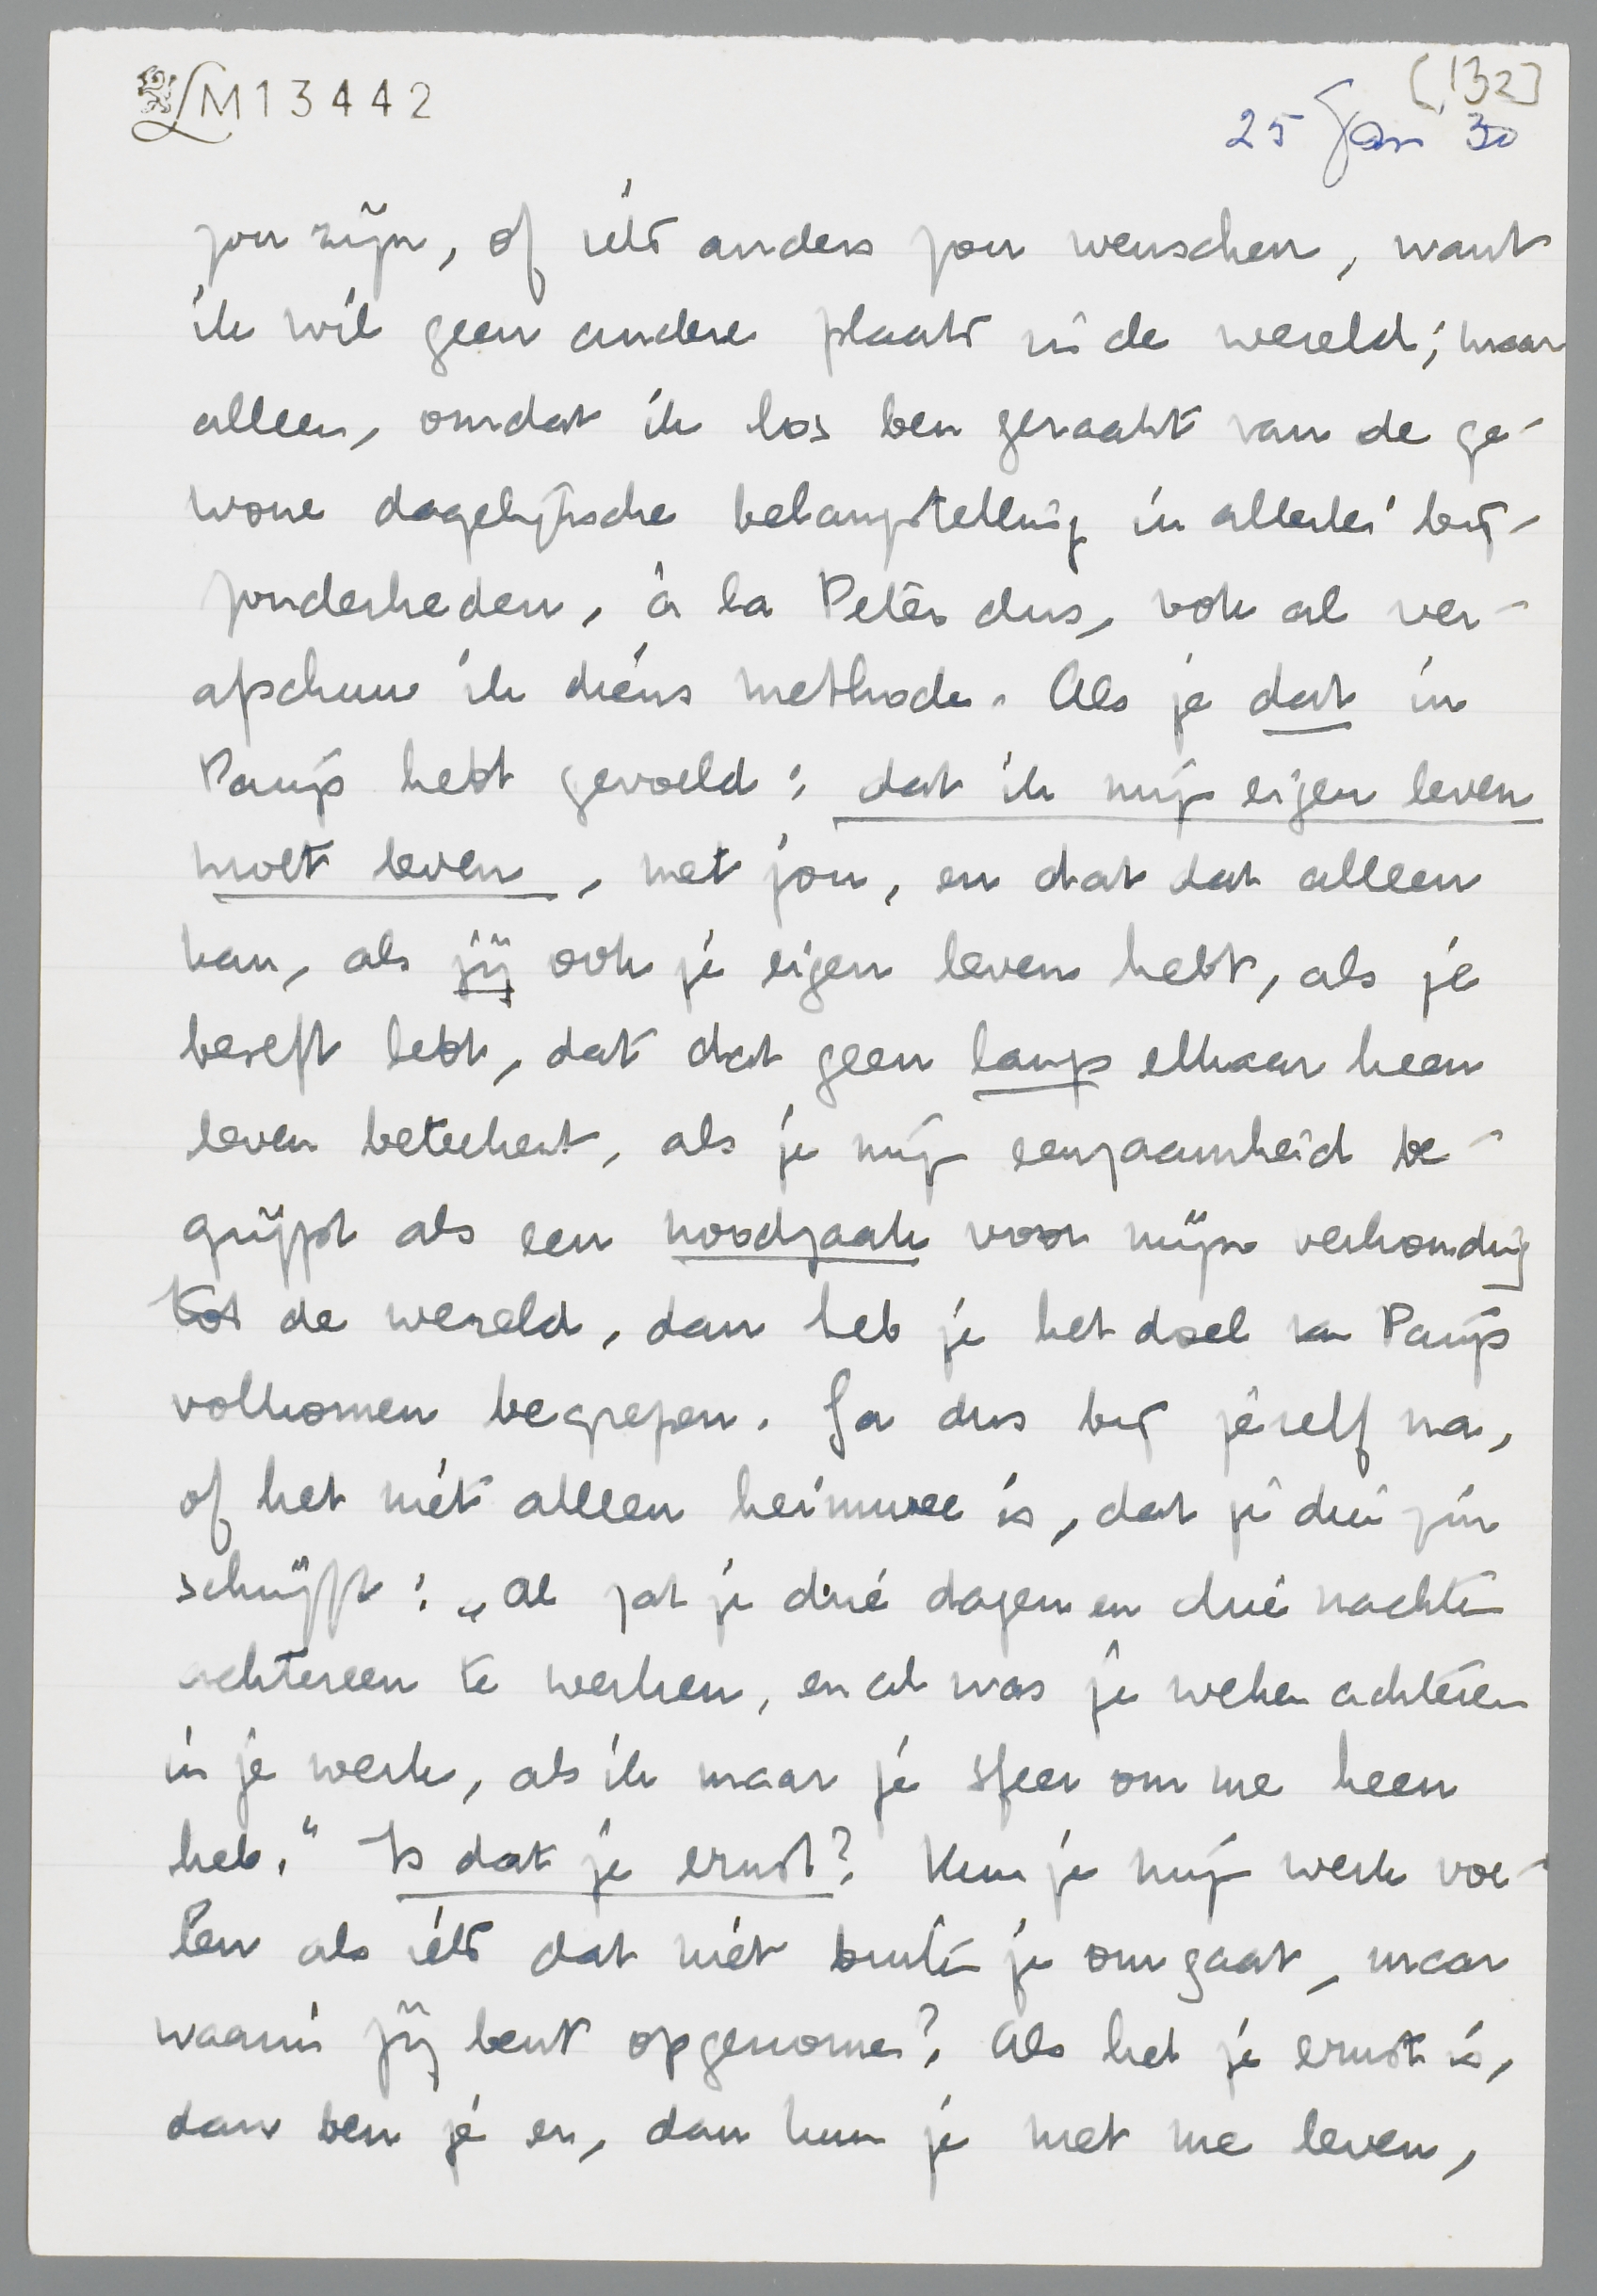 LM13442
[132]
25 Jan 30
zou zijn, of iets anders zou wenschen, want
ik wil geen andere plaats in de wereld; maar
alleen, omdat ik los ben geraakt van de ge-
wone dagelijksche belangstelling in allerlei bij-
zonderheden, à la Peter dus, ook al ver-
afschuw ik diens methode. Als je dat in
Parijs hebt gevoeld: dat ik mijn eigen leven
moet leven, met jou, en dat dat alleen
kan, als jij ook je eigen leven hebt, als je
beseft hebt, dat dat geen langs elkaar heen
leven beteekent, als je mijn eenzaamheid be-
grijpt als een noodzaak voor mijn verhouding
tot de wereld, dan heb je het doel van Parijs
volkomen begrepen. Ga dus bij jezelf na,
of het niet alleen heimwee is, dat je die zin
schrijft: „al zat je drie dagen en drie nachten
achtereen te werken, en al was je weken achtereen
in je werk, als ik maar je sfeer om me heen
heb." Is dat je ernst? Kun je mijn werk voe-
len als iets dat niet buiten je om gaat, maar
waarin jij bent opgenomen? Als het je ernst is,
dan ben je er, dan kun je met me leven,